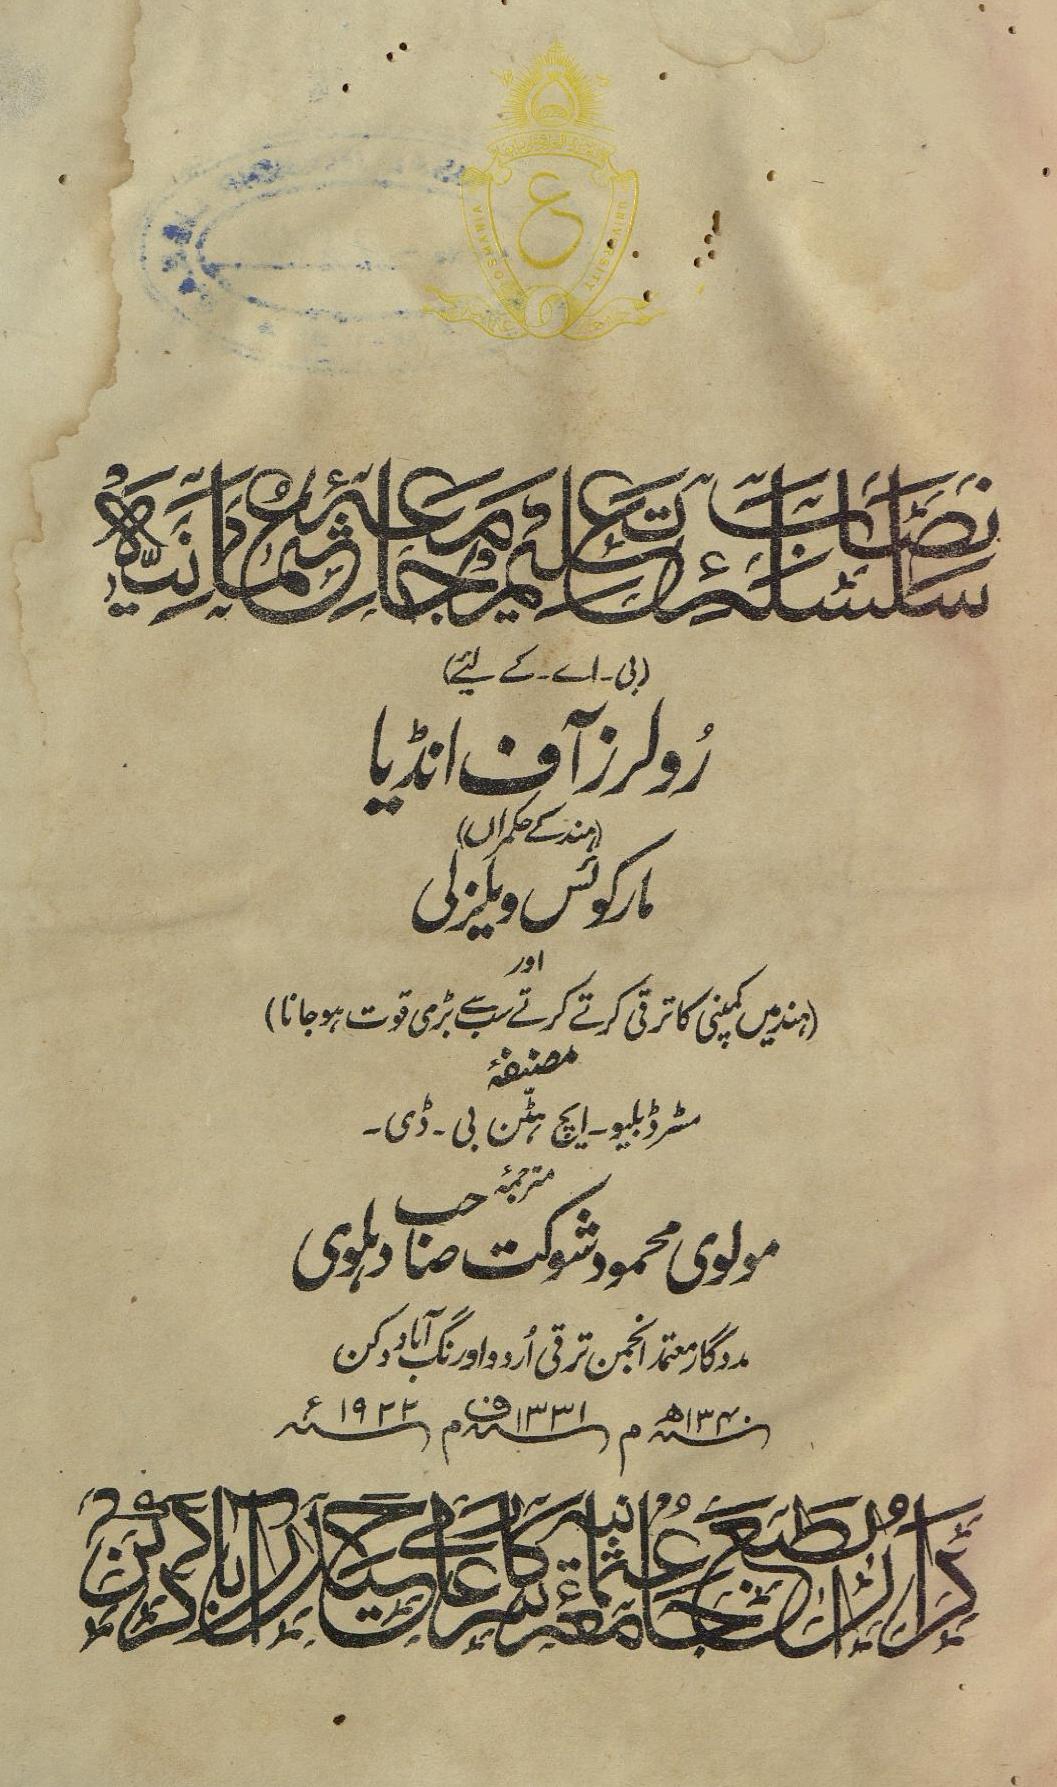 OSMANIA UNIVERSITY
ع
سلسلۂ نصاب تعلیم جامعۂ عثمانیہ
(بی۔اے۔کے لئے)
رُولرز آف انڈیا
(ہند کے حکمراں)
مارکوئس ویلزلی
اور
(ہند میں کمپنی کا ترقی کرتے کرتے سب سے بڑی قوت ہوجانا)
مصنفۂ
مسٹر ڈبلیو۔ ایچ ہٹن بی۔ ڈی۔
مترجمۂ
مولوی محمود شوکت صاحب دہلوی
مددگار معتمد انجمن ترقی اُردو اورنگ آباد دکن
سنہ ۱۳۴۰ھ م سنہ ۱۳۳۱ف م سنہ ۱۹۲۲ء
دارالطبع جامعۂ عثمانیہ سرکار عالی حیدرآباد دکن